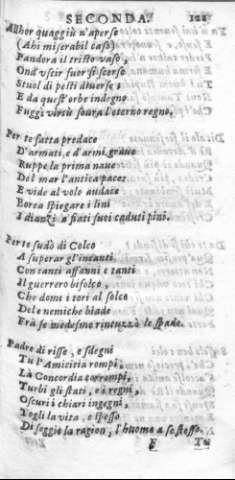 SECONDA. 121
Allhor quaggiù n'aperse
(Ahi miserabil caso)
Pandora il tristo vaso,
Ond'vscir fuor si scorse
Stuol di pesti diuerse;
E da quest'orbe indegno
Fuggì virtù soura l'eterno regno.
Per te fatta predace
D'armati, e d'armi graue
Ruppe la prima naue
Del mar l'antica pace;
E vide al volo audace
Borea spiegare i lini
I dianzi a' fiati suoi caduti pini.
Per te sudò di Colco
A superar gl'incanti,
Con tanti affanni e tanti
Il guerrero bifolco,
Che domò i tori al solco
De le nemiche biade
Frà se medesmo rintuzzò le spade.
Padre di risse, e sdegni
Tu l'Amicitia rompi,
La Concordia corrompi,
Turbi gli stati, e i regni,
Oscuri i chiari ingegni,
Togli la vita, e spesso
Di seggio la ragion, l'huomo a se stesso.
F Tu